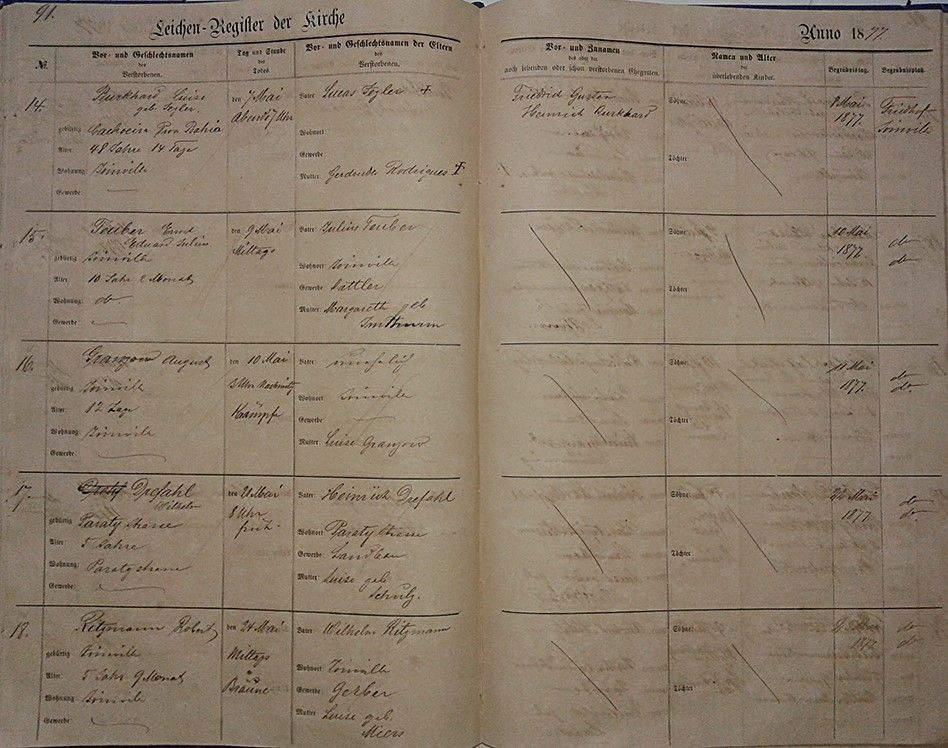 91.
Leichen-Register der Kirche
Anno 1877.
№
Vor- und Geschlechtsnamen
des
Verstorbenen.
Tag und Stunde
des
Todes
Vor- und Geschlechtsnamen der Eltern
des
Verstorbenen.
Vor- und Zunamen
des oder der
noch lebenden oder schon verstorbenen Ehegatten.
Namen und Alter
der
überlebenden Kinder.
Begräbnistag.
Begräbnisplatz.
14.
Burkhard Luise
geb.
gebürtig Cachoeira Prov. Bahia
Alter: 48 Jahre 14 Tage
Wohnung: Joinville
Gewerbe:
den 7 Mai
Abends 7 Uhr
Vater: Lucas +
Wohnort
Gewerbe
Mutter: Rodrigues +
Friedrid Gustav
Heinrich Burkhard
Söhne:
Töchter:
8 Mai
1877.
Friedhof
Joinville
15.
Teuber
Eduard Julius
gebürtig Joinville
Alter: 10 Jahr 2 Monat
Wohnung: do
Gewerbe
den 9 Mai
Mittags
Vater: Julius Teuber
Wohnort Joinville
Gewerbe Sattler
Mutter: Margareth geb
Imthurm
Söhne:
Töchter
10 Mai
1877.
do
do
16.
Granzow August
gebürtig Joinville
Alter: 12 Tage
Wohnung: Joinville
Gewerbe:
den 10 Mai
3 Uhr Nachmittg
Krämpfe
Vater: unehelich
Wohnort: Joinville
Gewerbe:
Mutter: Luise Granzow
Söhne:
Töchter:
11 Mai
1877.
do
do
17.
Drefahl
Wilhelm
gebürtig: Paraty strasse
Alter: 5 Jahre
Wohnung: Paratystrasse
Gewerbe:
den 21 Mai
8 Uhr
früh.
Vater: Heinrich Drefahl
Wohnort: Paraty strasse
Gewerbe: Landbau
Mutter: Luise geb.
Schulz.
Söhne:
Töchter:
22 Mai
1877.
do
do
18.
Ritzmann Robert
gebürtig Joinville
Alter 5 Jahr 9 Monat
Wohnung: Joinville
Gewerbe:
den 24 Mai
Mittags
Bräune
Vater: Wilhelm Ritzmann
Wohnort: Joinville
Gewerbe: Gerber
Mutter Luise geb.
Miers
Söhne:
Töchter
1877
do
do